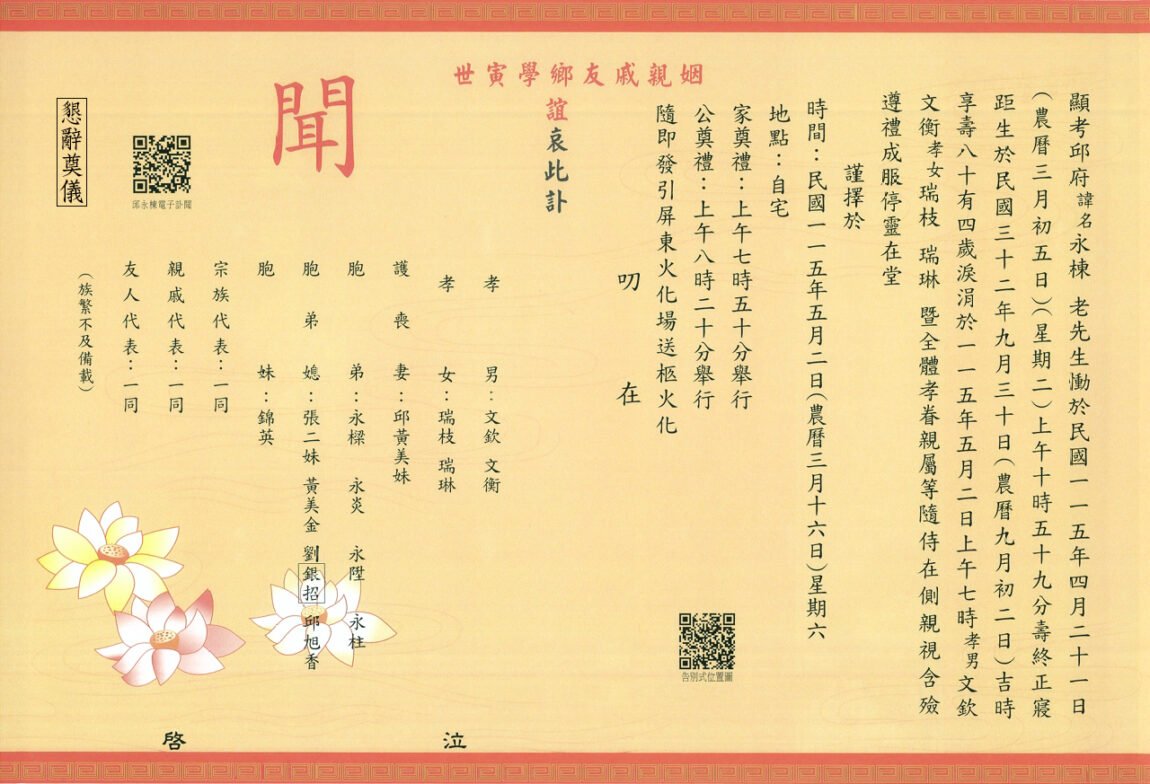 顯考邱府諱名永棟 老先生慟於民國一一五年四月二十一日
(農曆三月初五日)(星期二)上午十時五十九分壽終正寢
距生於民國三十二年九月三十日(農曆九月初二日)吉時
享壽八十有四歲淚涓於一一五年五月二日上午七時孝男文欽
文衡孝女瑞枝 瑞琳 暨全體孝眷親屬等隨侍在側親視含殮
遵禮成服停靈在堂
謹擇於
時間：民國一一五年五月二日(農曆三月十六日)星期六
地點：自宅
家奠禮：上午七時五十分舉行
公奠禮：上午八時二十分舉行
隨即發引屏東火化場送柩火化
告別式位置圖
叨在
姻親戚友鄉學寅世
誼哀此訃
聞
孝男：文欽 文衡
孝女：瑞枝 瑞琳
護喪妻：邱黃美妹
胞弟：永樑 永炎 永陞 永柱
胞弟媳：張二妹 黃美金 劉銀招 邱旭香
胞妹：錦英
宗族代表：一同
親戚代表：一同
友人代表：一同
(族繁不及備載)
泣啓
邱永棟電子訃聞
懇辭奠儀